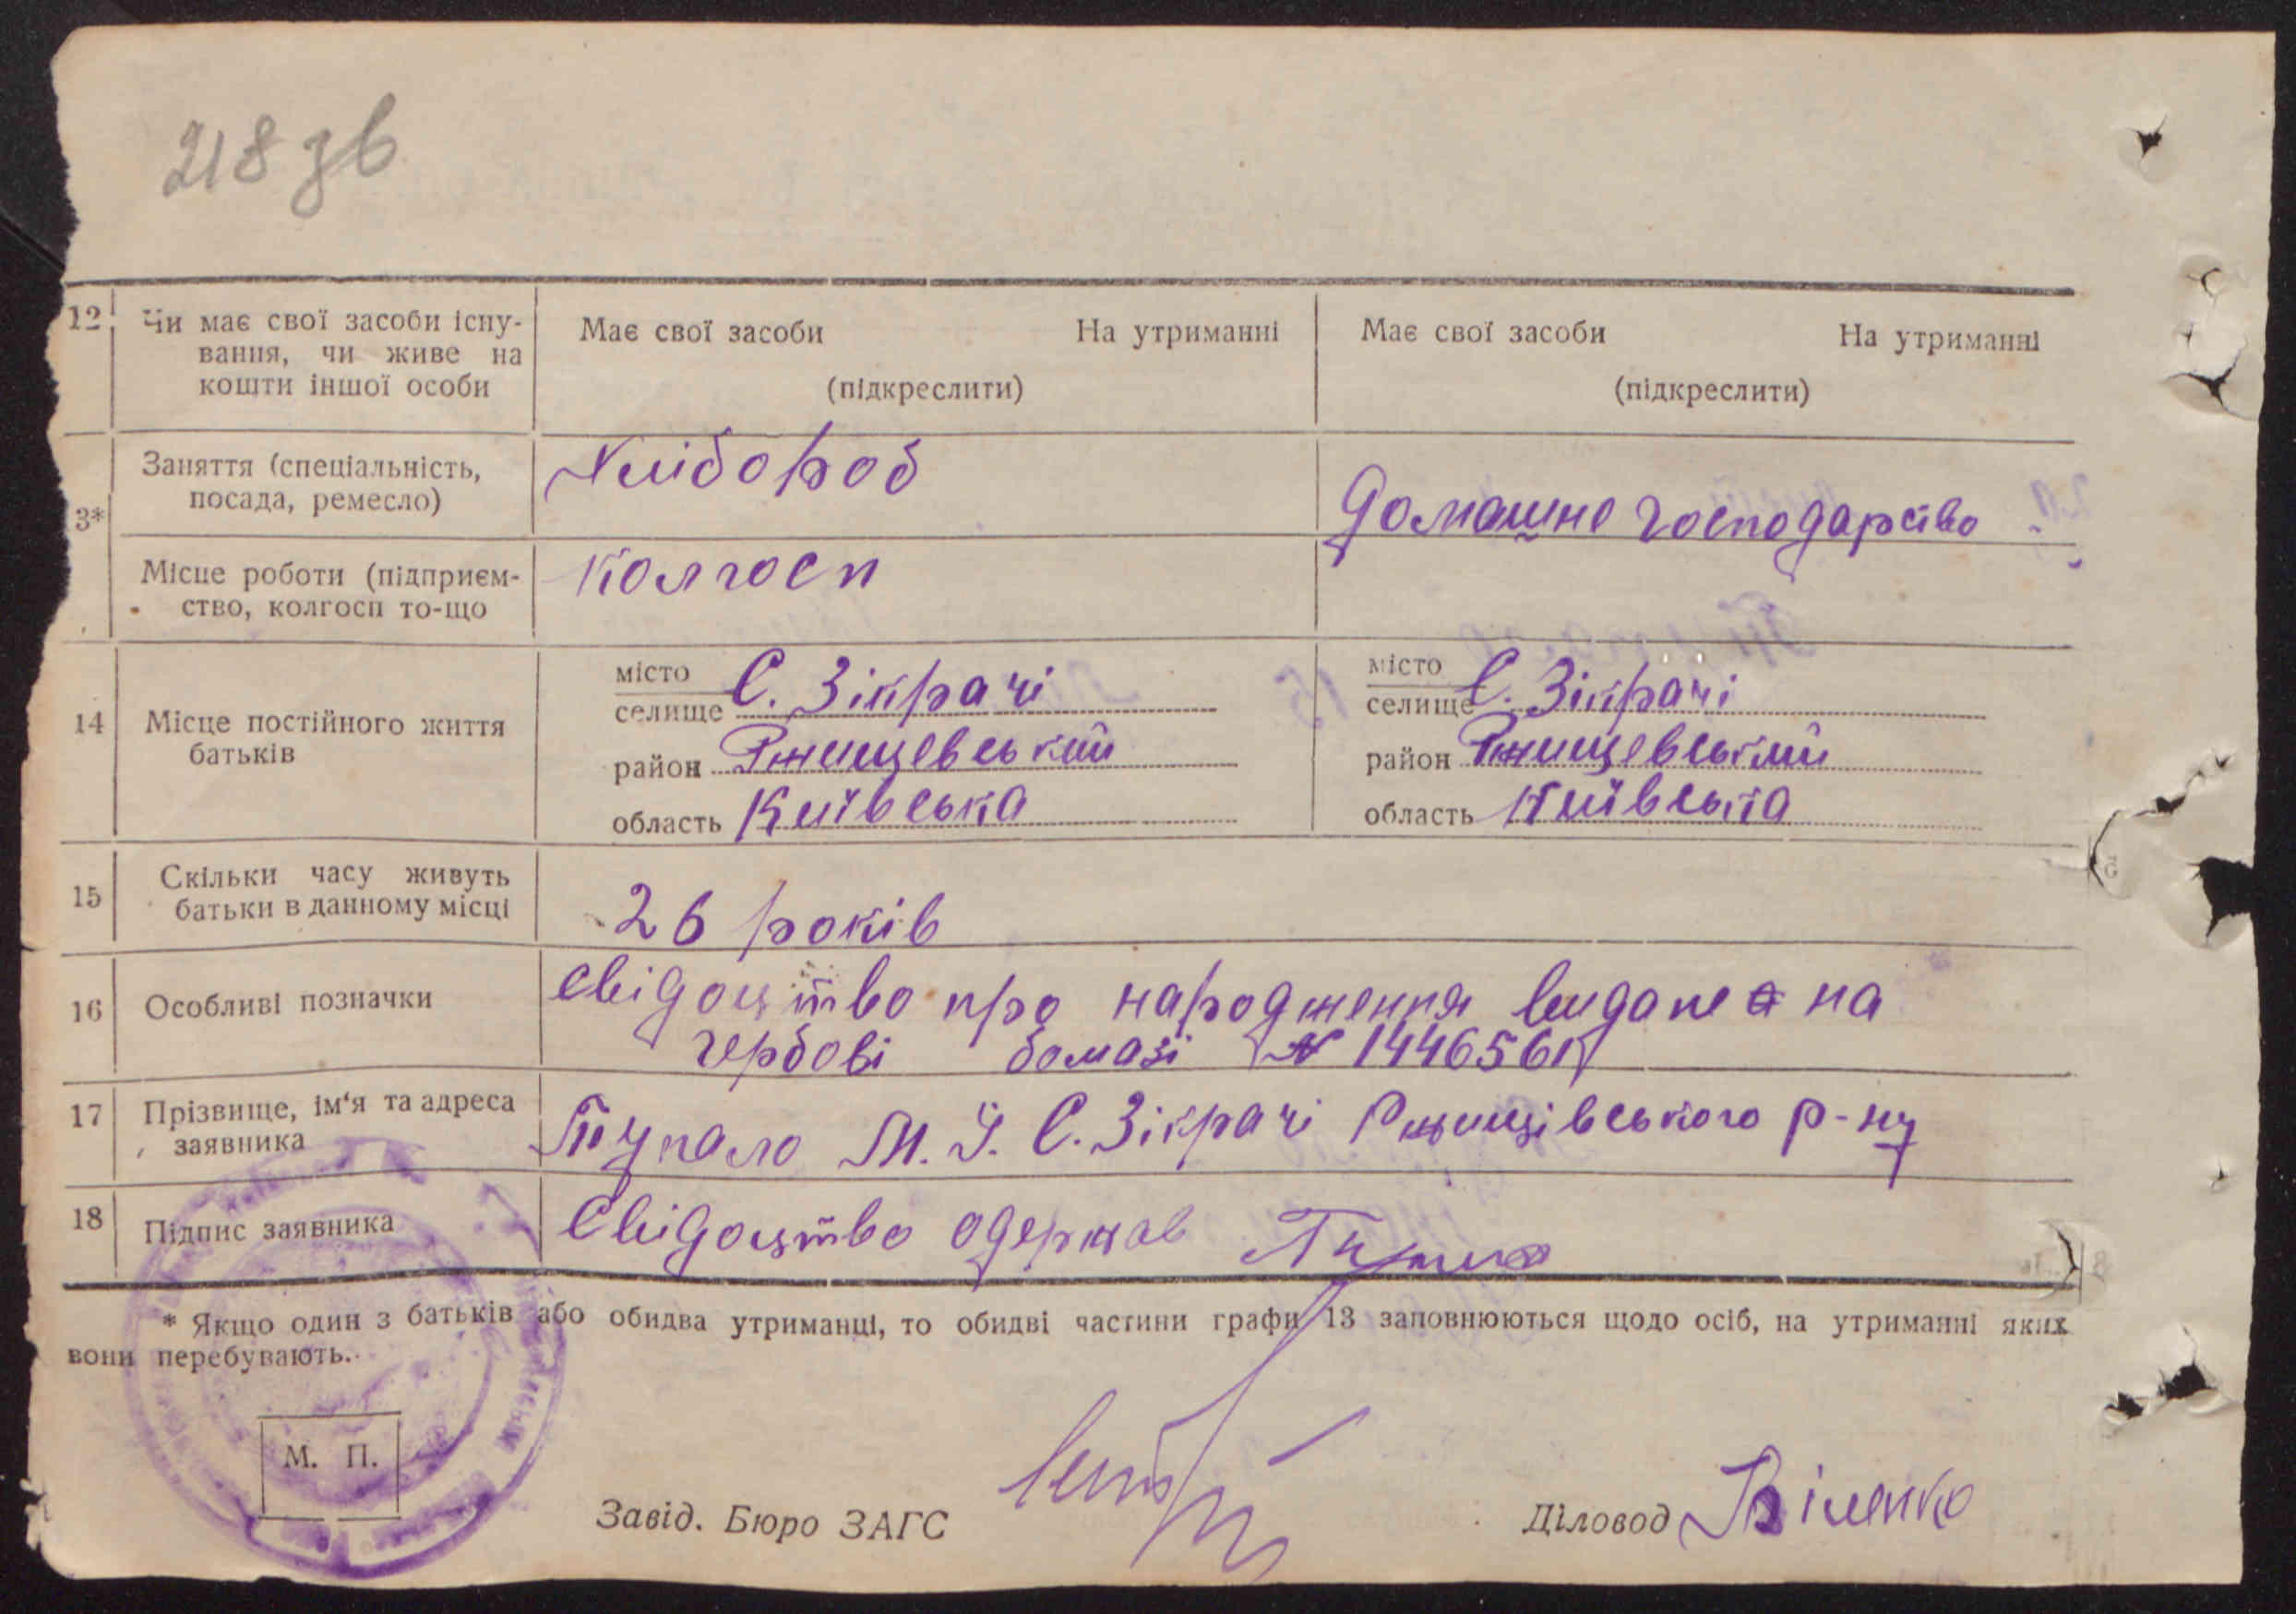 218 зв
12 Чи має свої засоби існу-
вання, чи живе на
кошти іншої особи
Має свої засоби На утриманні
(підкреслити)
Має свої засоби На утриманні
(підкреслити)
3*
Заняття (спеціальність,
посада, ремесло)
Хлібороб
Домашнє господарство
Місце роботи (підприєм-
ство, колгосп то-що
Колгосп
14 Місце постійного життя
батьків
місто
селище С. Зікрачі
район Ржищевський
область Київська
місто
селище С. Зікрачі
район Ржищевський
область Київська
15 Скільки часу живуть
батьки в данному місці
26 років
16 Особливі позначки
Свідоцтво про народження видане на
гербові бомазі № 1446561
17 Прізвище, ім'я та адреса
заявника
Тупало М. Й. С. Зікрачі Ржищівського р-ну
18 Підпис заявника
Свідоцтво одержав
* Якщо один з батьків або обидва утриманці, то обидві частини графи 13 заповнюються щодо осіб, на утриманні яких
вони перебувають.
М. П.
Завід. Бюро ЗАГС
Діловод